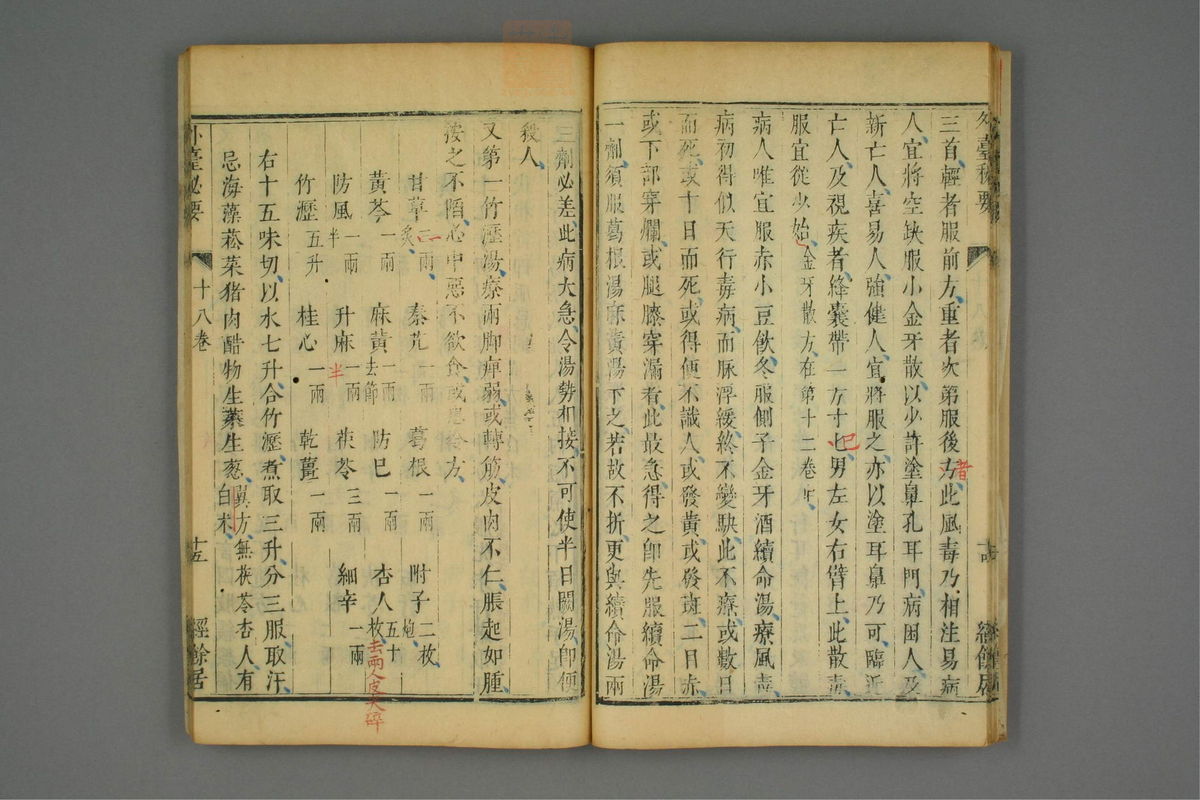 外臺秘要
三首輕者服前方重者次第服後方此風毒乃相注易病
者
人宜將空缺服小金牙散以少許塗鼻孔耳門病困人及
新亡人喜易人強健人宜將服之亦以塗耳鼻乃可臨近
亡人及視疾者絳囊帶一方寸匕男左女右臂上此散毒
巳
服宜從少始金牙散方在第十二卷中
病人唯宜服赤小豆飲冬服側子金牙酒續命湯療風毒
病初得似天行毒病而脉浮緩終不變駃此不療或數日
而死或十日而死或得便不識人或發黃或發斑二目赤
或下部穿爛或腿膝穿漏者此最急得之即先服續命湯
一劑須服葛根湯麻黃湯下之若故不折更與續命湯兩
三劑必差此病大急令湯勢相接不可使半日闕湯即便
殺人
又第一竹瀝湯療兩脚痺弱或轉筋皮肉不仁脹起如腫
按之不陷心中惡不欲食或患冷方
甘草二兩炙 秦艽一兩 葛根一兩 附子二枚炮
黃芩一兩 麻黃一兩去節 防巳一兩 杏人五十枚
去兩人皮尖碎
防風一兩半 升麻一兩 茯苓三兩 細辛一兩
半
竹瀝五升 桂心一兩 乾薑一兩
右十五味切以水七升合竹瀝煮取三升分三服取汗
忌海藻菘菜猪肉醋物生菜生葱翼方無茯苓杏人有白术
外臺必要 十八卷 十五 經餘居